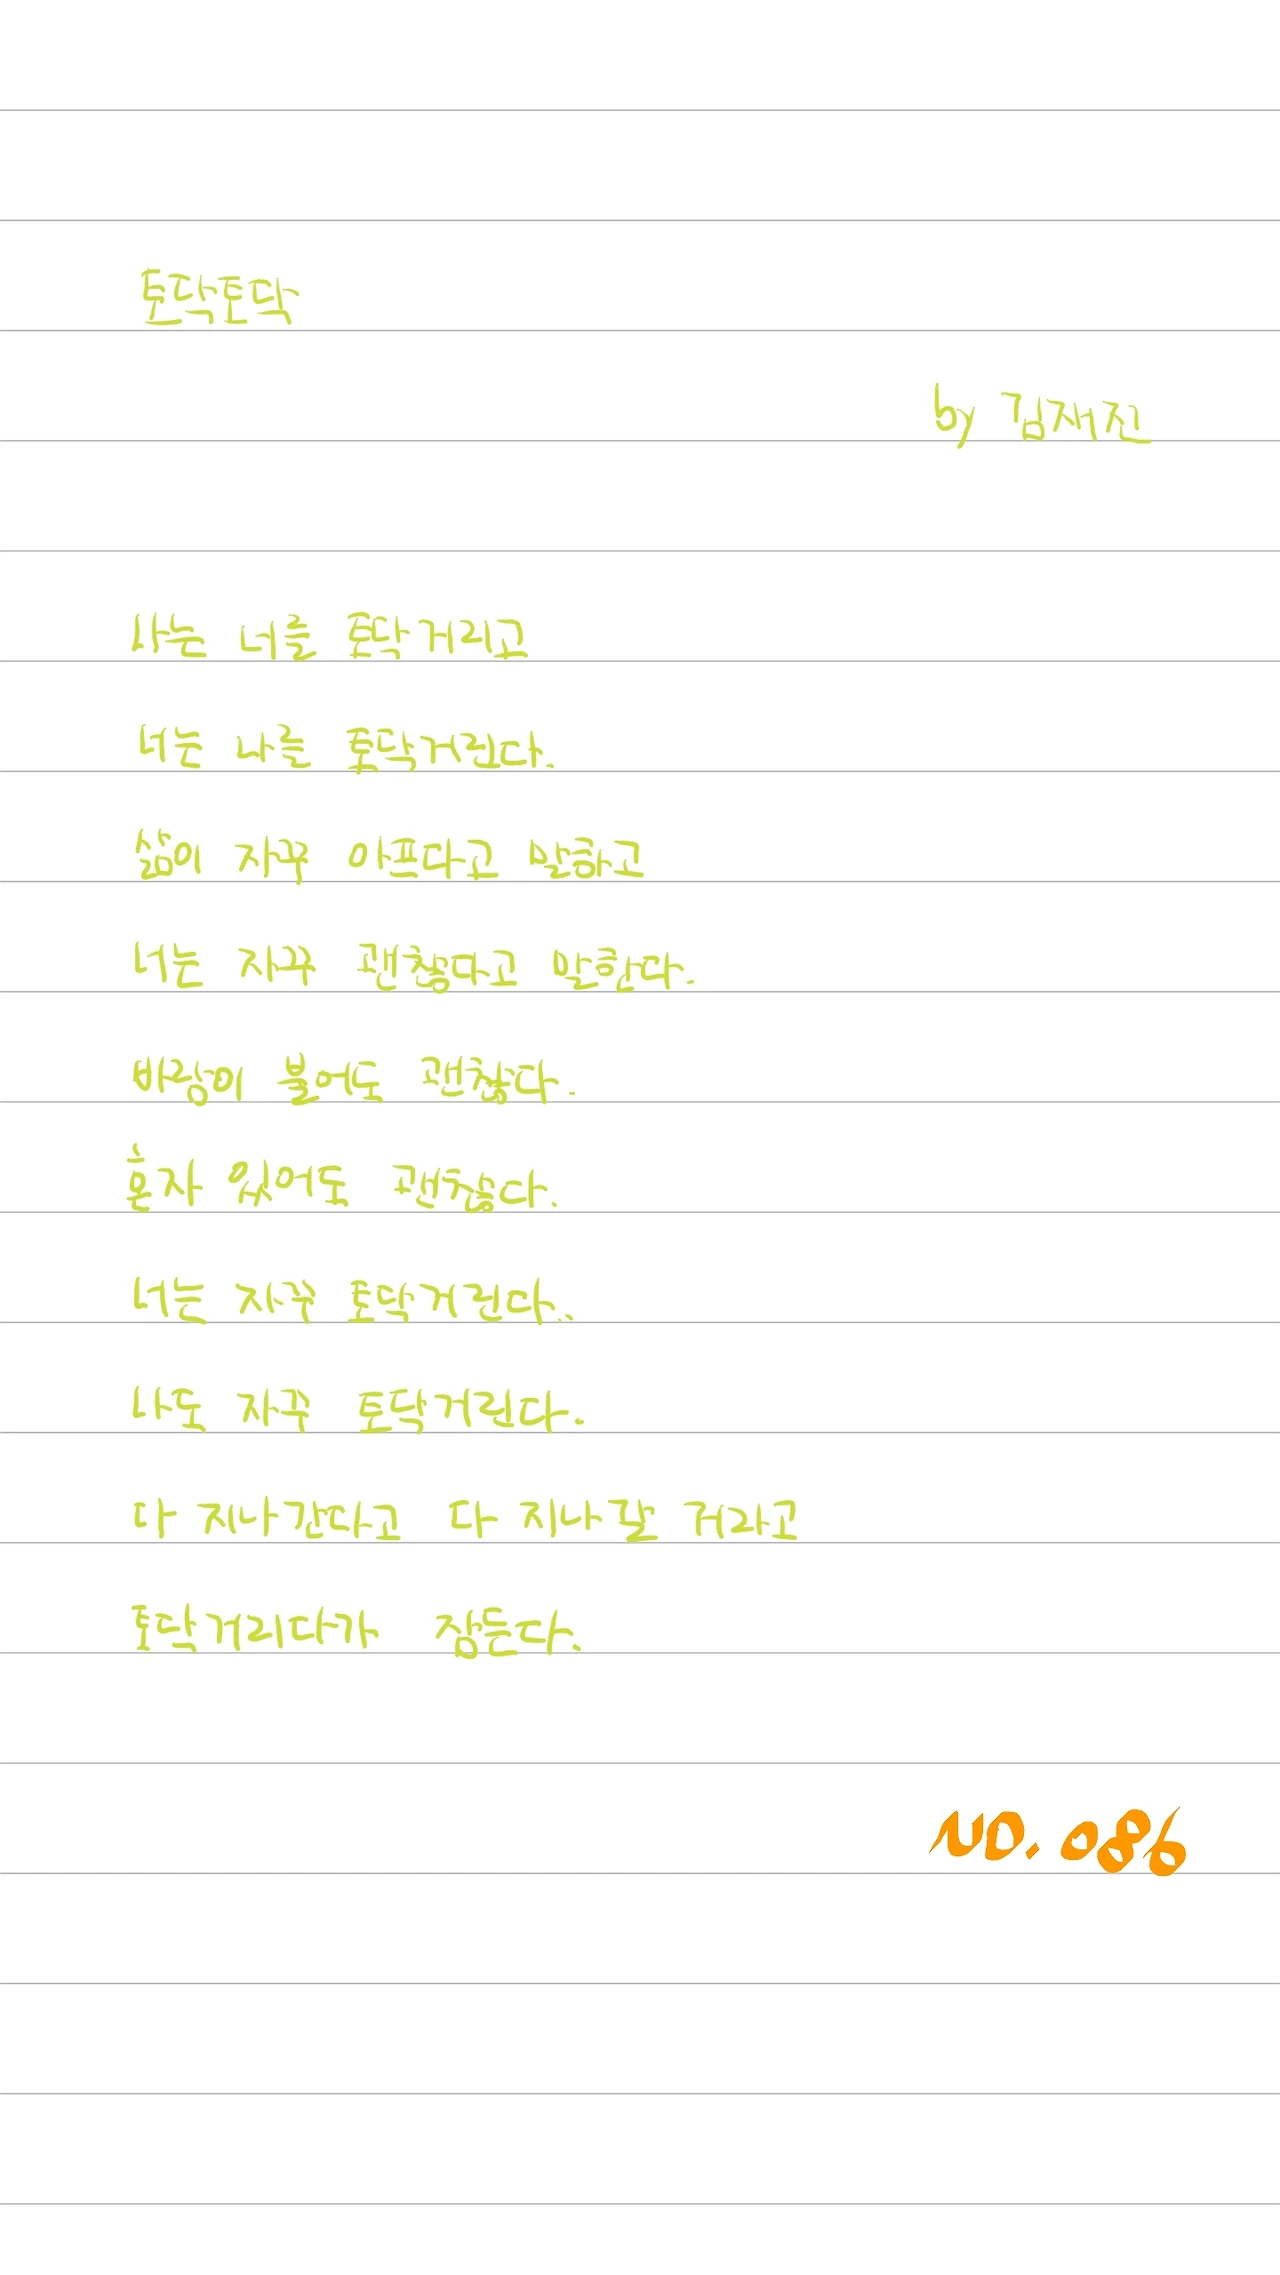 토닥토닥
by 김재진
나는 너를 토닥거리고
너는 나를 토닥거린다.
삶이 자꾸 아프다고 말하고
너는 자꾸 괜찮다고 말한다.
바람이 불어도 괜찮다.
혼자 있어도 괜찮다.
너는 자꾸 토닥거린다..
나도 자꾸 토닥거린다.
다 지나간다고 다 지나갈 거라고
토닥거리다가 잠든다.
NO. 086